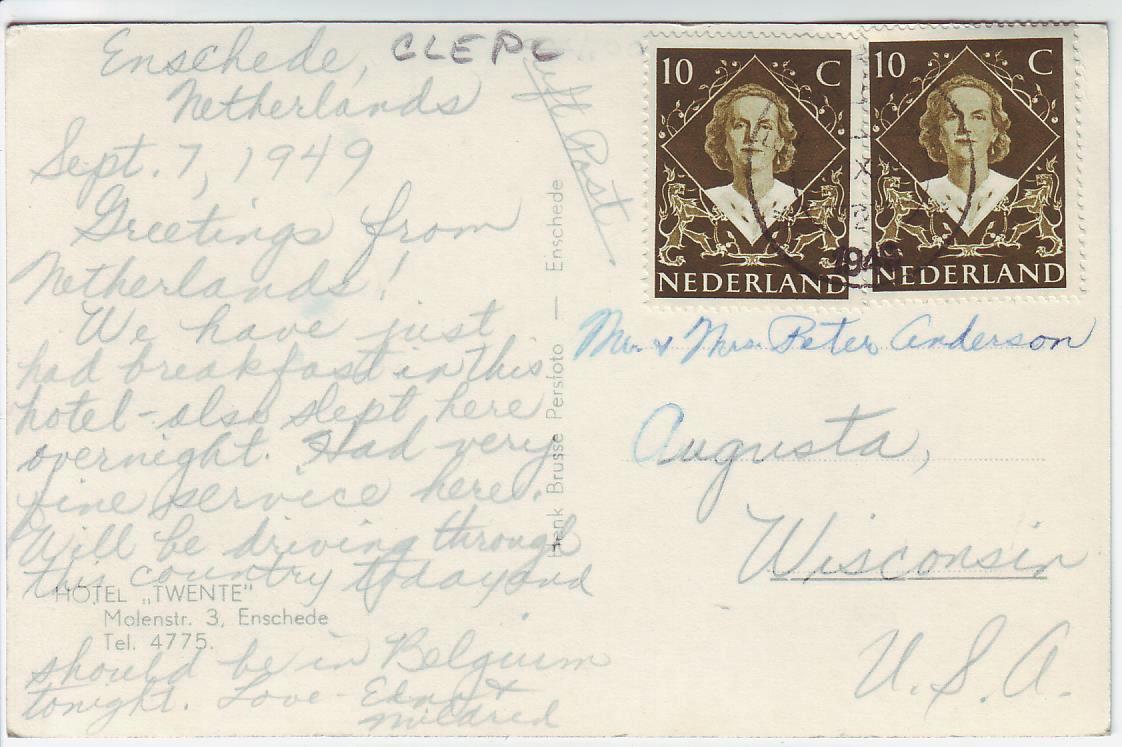 Enschede,
Netherlands
Sept. 7, 1949
Greetings from
Netherlands!
We have just
had breakfast in this
hotel - also slept here
overnight. Had very
fine service here.
Will be driving through
this country today and
should be in Belguim
tonight. Love - Edna &
Mildred
HOTEL „TWENTE"
Molenstr. 3, Enschede
Tel. 4775.
Henk Brusse Persfoto — Enschede
Post
10 C
NEDERLAND
10 C
NEDERLAND
1949
Mr. & Mrs. Peter Anderson
Augusta,
Wisconsin
U.S.A.